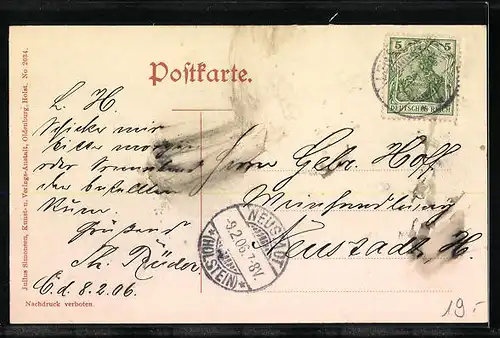 Postkarte.
5 5
DEUTSCHES REICH
L. H.
Schicke mir
bitte morgen
oder Sonnabend
den bestellten
Rum.
Grüßend
Th. Rüder
C. d. 8.2.06.
Herrn Gebr. Hoff
Weinhandlung
Neustadt i, H.
NEUSTADT
-9.2.06.7-8V.
*(HOLSTEIN)*
Julius Simonsen, Kunst- u. Verlags-Anstalt, Oldenburg, Holst. No 2034.
Nachdruck verboten.
19.-